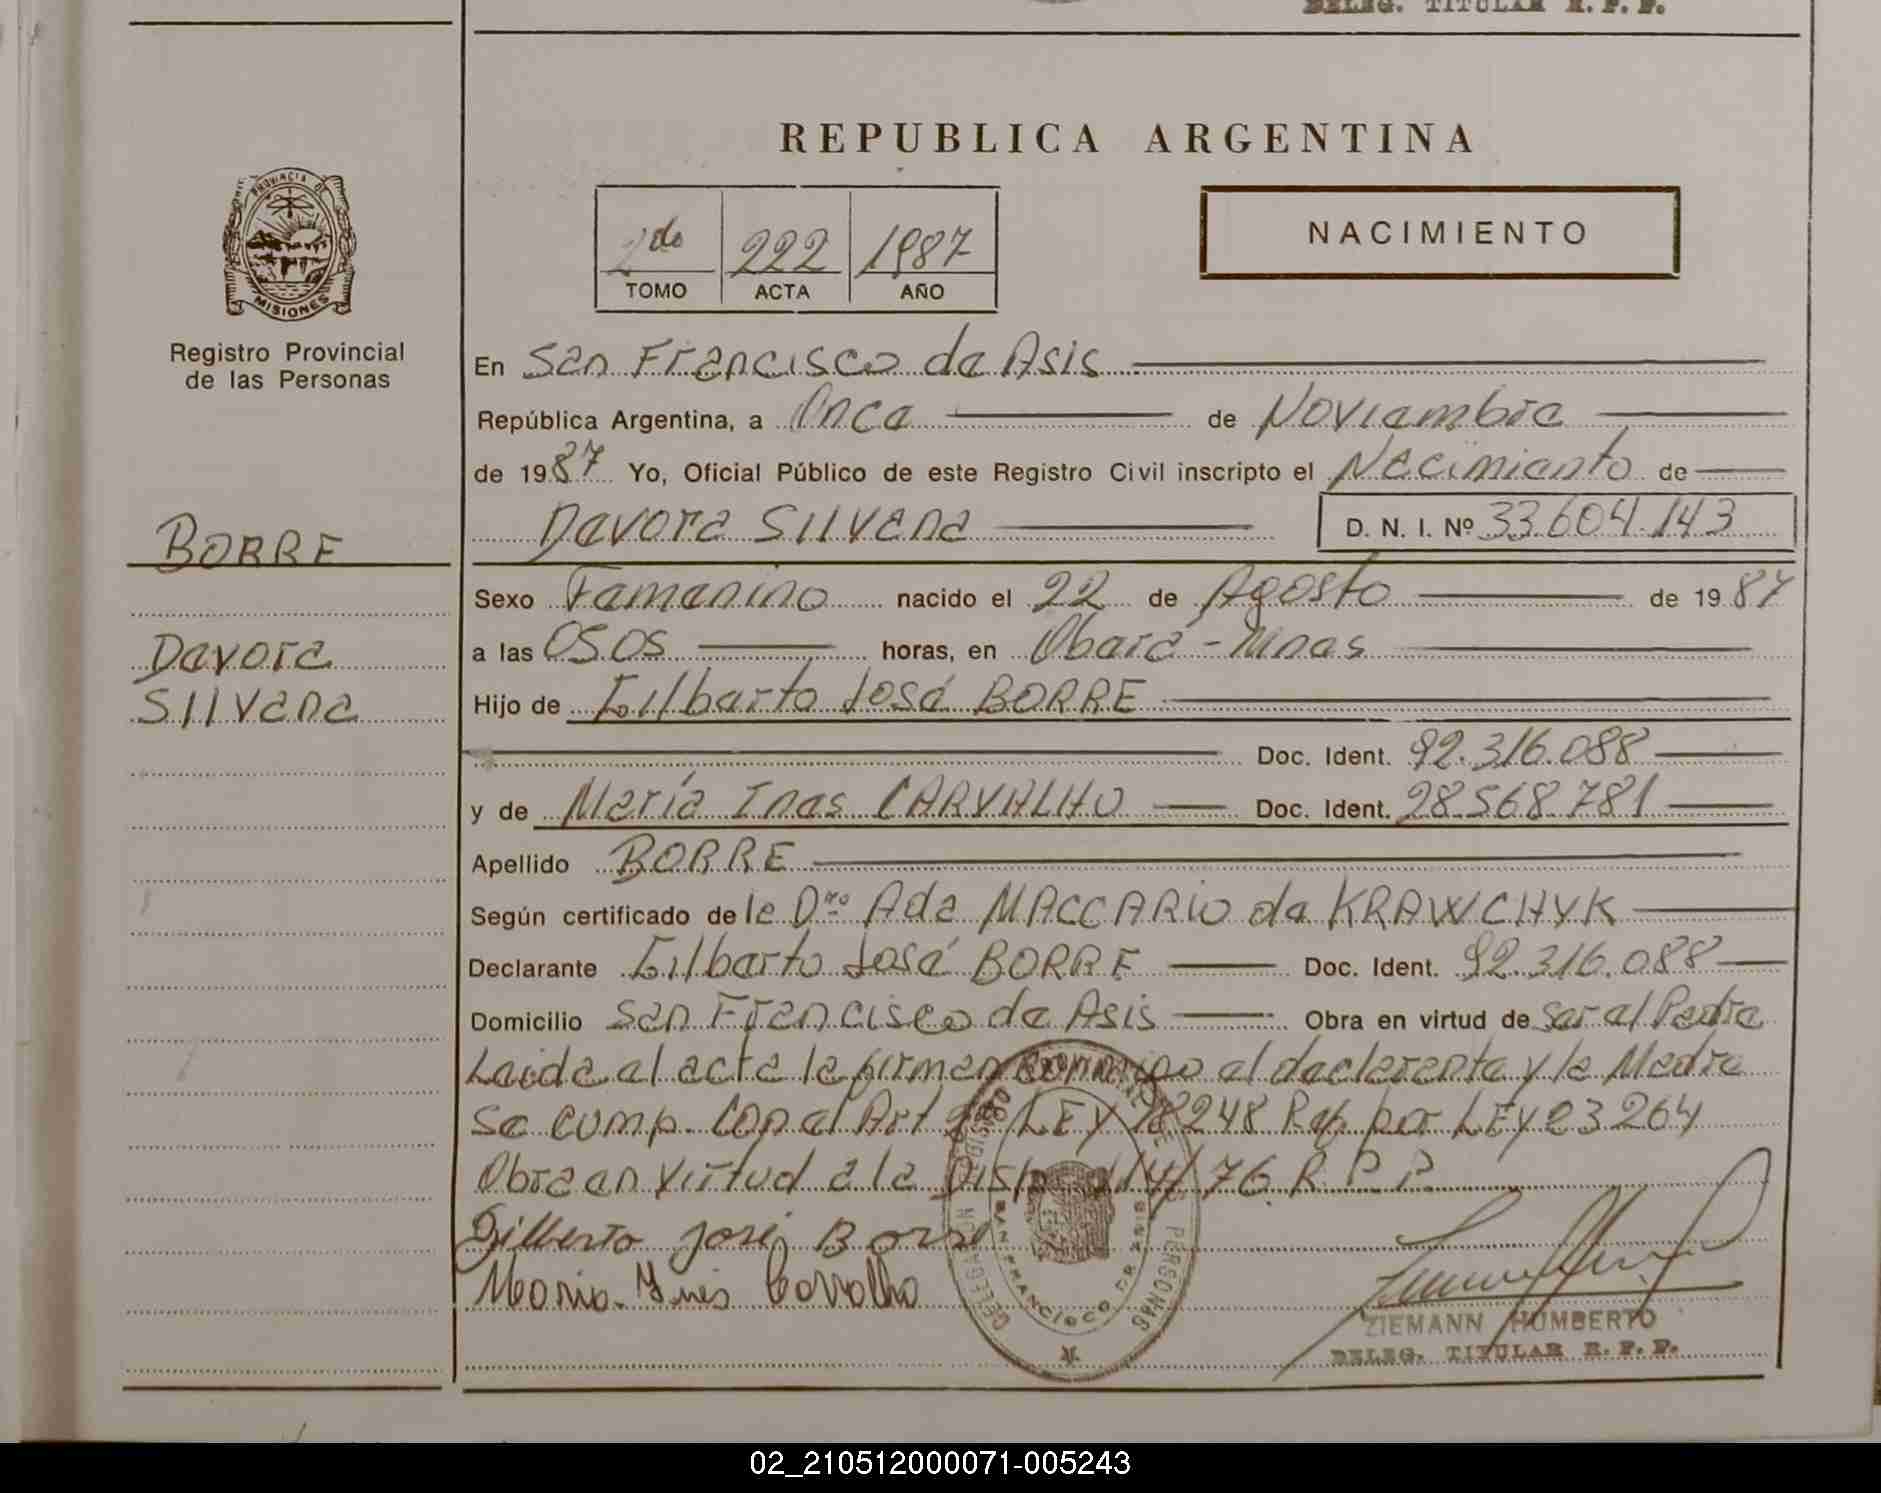 DELEG. TITULAR R. P. P.
REPUBLICA ARGENTINA
PROVINCIA DE
MISIONES
Registro Provincial
de las Personas
2do 222 1987
TOMO ACTA AÑO
NACIMIENTO
En San Francisco de Asis
República Argentina, a Once de Noviembre
de 1987 Yo, Oficial Público de este Registro Civil inscripto el Nacimiento de
Davora Silvana D. N. I. Nº 33.604.143
BORRE
Sexo Femenino nacido el 22 de Agosto de 1987
Davora
a las 0505 horas, en Oberá - Mnes
Silvana
Hijo de Gilberto José BORRE
Doc. Ident. 92.316.088
y de María Ines CARVALHO Doc. Ident. 28.568.781
Apellido BORRE
Según certificado de la Dra Ada MACCARIO de KRAWCHYK
Declarante Gilberto José BORRE Doc. Ident. 92.316.088
Domicilio San Francisco de Asis Obra en virtud de ser el Padre
Leida el acta la firman conmigo el declarante y la Madre
Se cump. con el Art LEY 18248 Ref. por LEY 23264
Obra en virtud a la Disp 114/76 R.P.P.
Gilberto José Borre
Maria Ines Carvalho
DELEGACION
PERSONAS
SAN FRANCISCO DE ASIS
ZIEMANN HUMBERTO
DELEG. TITULAR R. P. P.
02_210512000071-005243